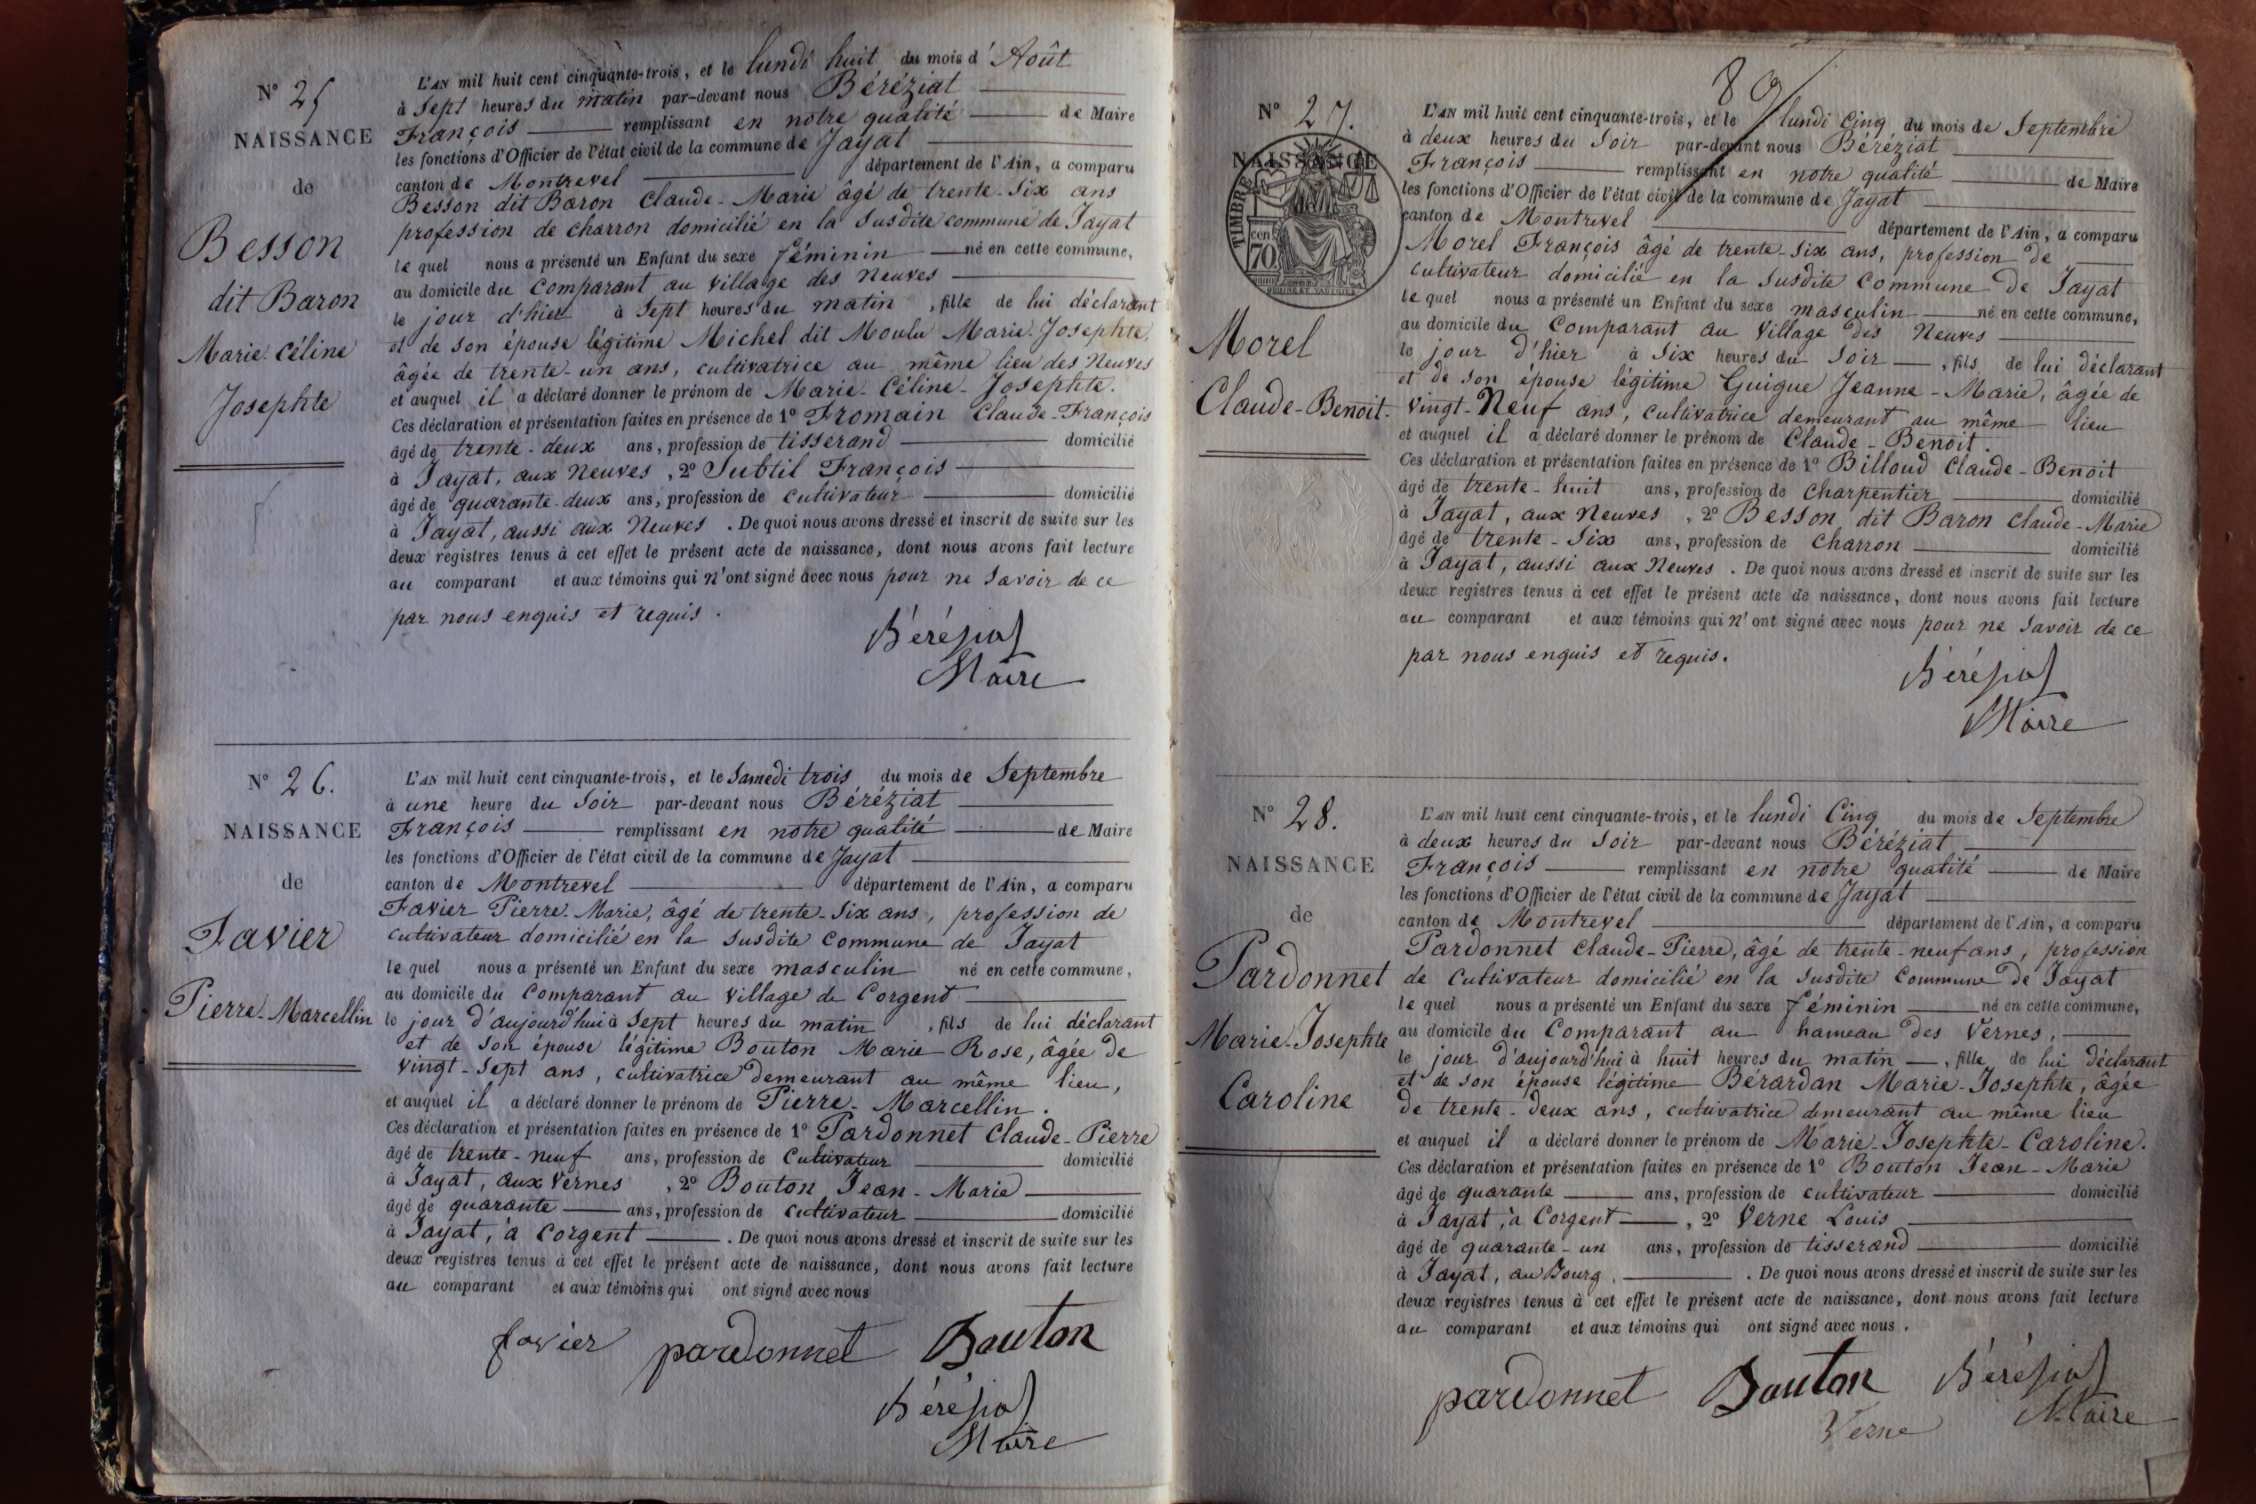 N° 25
NAISSANCE
de
Besson
dit Baron
Marie Céline
Josephte
L'AN mil huit cent cinquante-trois, et le lundi huit du mois d'Août
à sept heures du matin par-devant nous Béréziat
François remplissant en notre qualité de Maire
les fonctions d'Officier de l'état civil de la commune de Jayat
canton de Montrevel département de l'Ain, a comparu
Besson dit Baron Claude-Marie âgé de trente-six ans
profession de charron domicilié en la susdite commune de Jayat
le quel nous a présenté un Enfant du sexe féminin né en cette commune,
au domicile du comparant au village des Neuves
le jour d'hier à sept heures du matin, fille de lui déclarant
et de son épouse légitime Michel dit Moulu Marie-Josephte,
âgée de trente-un ans, cultivatrice au même lieu des Neuves
et auquel il a déclaré donner le prénom de Marie-Céline-Josephte.
Ces déclaration et présentation faites en présence de 1° Fromain Claude-François
âgé de trente-deux ans, profession de tisserand domicilié
à Jayat, aux Neuves, 2° Subtil François
âgé de quarante-deux ans, profession de cultivateur domicilié
à Jayat, aussi aux Neuves. De quoi nous avons dressé et inscrit de suite sur les
deux registres tenus à cet effet le présent acte de naissance, dont nous avons fait lecture
au comparant et aux témoins qui n'ont signé avec nous pour ne savoir de ce
par nous enquis et requis.
Béréziat
Maire
N° 26.
NAISSANCE
de
Favier
Pierre-Marcellin
L'AN mil huit cent cinquante-trois, et le samedi trois du mois de Septembre
à une heure du soir par-devant nous Béréziat
François remplissant en notre qualité de Maire
les fonctions d'Officier de l'état civil de la commune de Jayat
canton de Montrevel département de l'Ain, a comparu
Favier Pierre-Marie, âgé de trente-six ans, profession de
cultivateur domicilié en la susdite commune de Jayat
le quel nous a présenté un Enfant du sexe masculin né en cette commune,
au domicile du comparant au village de Corgent
le jour d'aujourd'hui à sept heures du matin, fils de lui déclarant
et de son épouse légitime Bouton Marie-Rose, âgée de
vingt-sept ans, cultivatrice demeurant au même lieu,
et auquel il a déclaré donner le prénom de Pierre-Marcellin.
Ces déclaration et présentation faites en présence de 1° Pardonnet Claude-Pierre
âgé de trente-neuf ans, profession de cultivateur domicilié
à Jayat, aux Vernes, 2° Bouton Jean-Marie
âgé de quarante ans, profession de cultivateur domicilié
à Jayat, à Corgent. De quoi nous avons dressé et inscrit de suite sur les
deux registres tenus à cet effet le présent acte de naissance, dont nous avons fait lecture
au comparant et aux témoins qui ont signé avec nous
favier pardonnet Bouton
Béréziat
Maire
89
N° 27.
NAISSANCE
TIMBRE
70
Morel
Claude-Benoit.
L'AN mil huit cent cinquante-trois, et le lundi cinq du mois de Septembre
à deux heures du soir par-devant nous Béréziat
François remplissant en notre qualité de Maire
les fonctions d'Officier de l'état civil de la commune de Jayat
canton de Montrevel département de l'Ain, a comparu
Morel François âgé de trente-six ans, profession de
cultivateur domicilié en la susdite commune de Jayat
le quel nous a présenté un Enfant du sexe masculin né en cette commune,
au domicile du comparant au village des Neuves
le jour d'hier à six heures du soir, fils de lui déclarant
et de son épouse légitime Guigue Jeanne-Marie, âgée de
vingt-Neuf ans, cultivatrice demeurant au même lieu
et auquel il a déclaré donner le prénom de Claude-Benoit.
Ces déclaration et présentation faites en présence de 1° Billoud Claude-Benoit
âgé de trente-huit ans, profession de charpentier domicilié
à Jayat, aux Neuves, 2° Besson dit Baron Claude-Marie
âgé de trente-six ans, profession de charron domicilié
à Jayat, aussi aux Neuves. De quoi nous avons dressé et inscrit de suite sur les
deux registres tenus à cet effet le présent acte de naissance, dont nous avons fait lecture
au comparant et aux témoins qui n'ont signé avec nous pour ne savoir de ce
par nous enquis et requis.
Béréziat
Maire
N° 28.
NAISSANCE
de
Pardonnet
Marie-Josephte
Caroline
L'AN mil huit cent cinquante-trois, et le lundi Cinq du mois de Septembre
à deux heures du soir par-devant nous Béréziat
François remplissant en notre qualité de Maire
les fonctions d'Officier de l'état civil de la commune de Jayat
canton de Montrevel département de l'Ain, a comparu
Pardonnet Claude-Pierre, âgé de trente-neuf ans, profession
de cultivateur domicilié en la susdite Commune de Jayat
le quel nous a présenté un Enfant du sexe féminin né en cette commune,
au domicile du comparant au hameau des Vernes,
le jour d'aujourd'hui à huit heures du matin, fille de lui déclarant
et de son épouse légitime Bérardan Marie-Josephte, âgée
de trente-deux ans, cultivatrice demeurant au même lieu
et auquel il a déclaré donner le prénom de Marie-Josephte-Caroline.
Ces déclaration et présentation faites en présence de 1° Bouton Jean-Marie
âgé de quarante ans, profession de cultivateur domicilié
à Jayat, à Corgent, 2° Verne Louis
âgé de quarante-un ans, profession de tisserand domicilié
à Jayat, au Bourg. De quoi nous avons dressé et inscrit de suite sur les
deux registres tenus à cet effet le présent acte de naissance, dont nous avons fait lecture
au comparant et aux témoins qui ont signé avec nous.
pardonnet Bouton Béréziat
Verne Maire